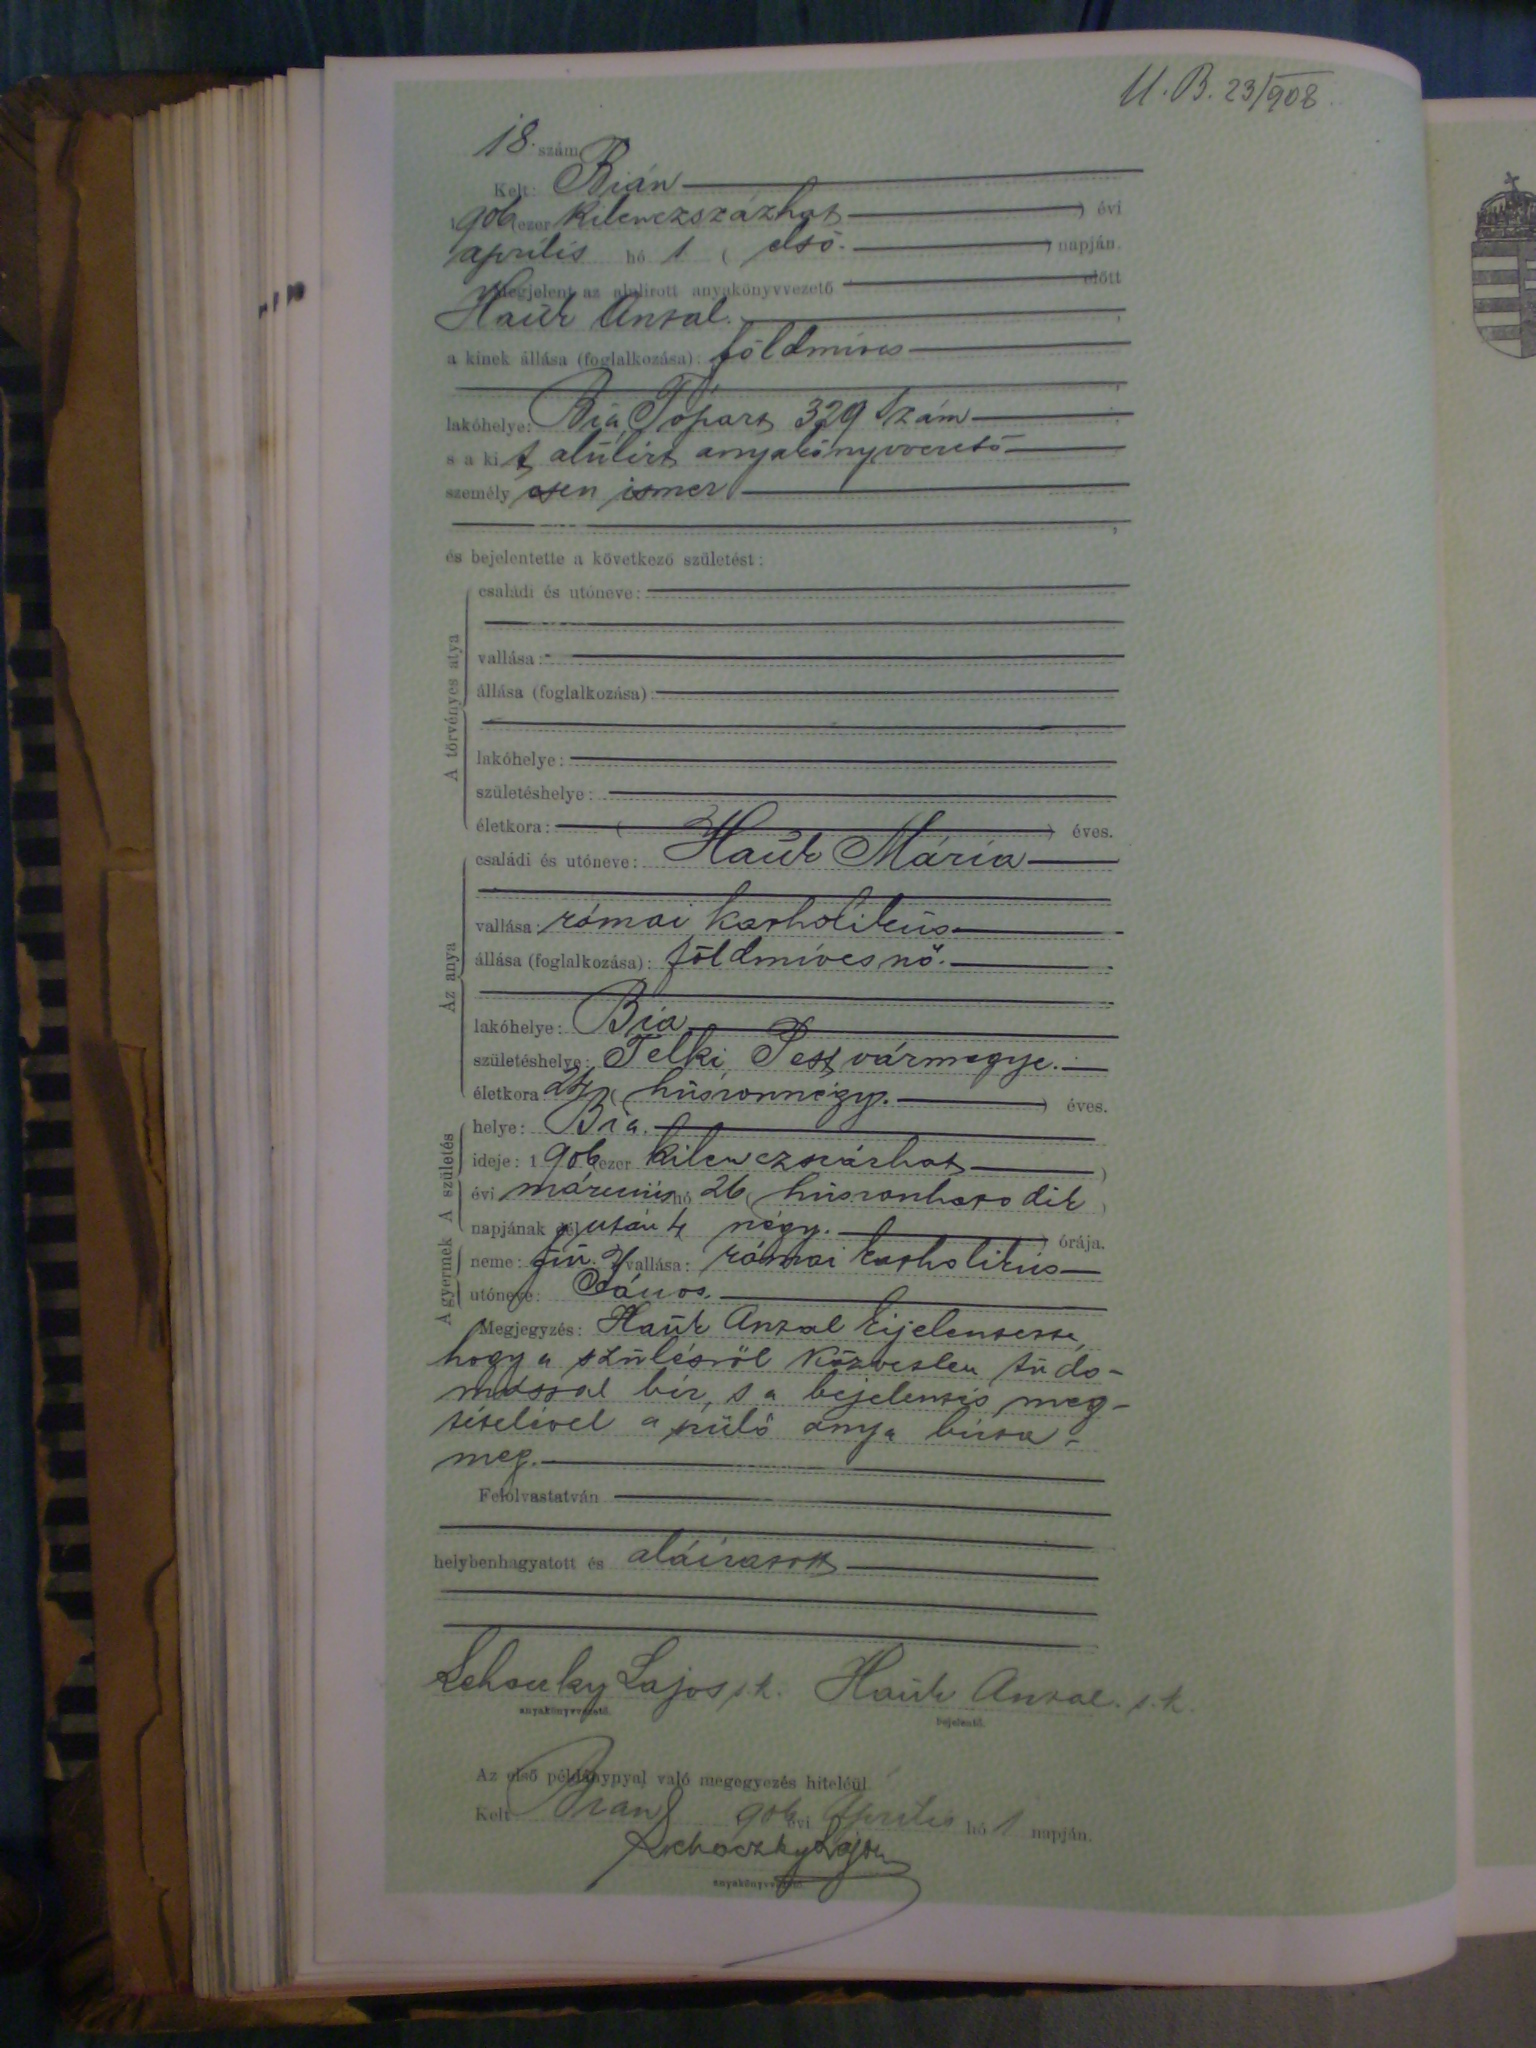 U. B. 23/908.
18. szám
Kelt: Bián
1906 (ezer kilenczszázhat) évi
április hó 1 (első.) napján.
Megjelent az alulirott anyakönyvvezető előtt
Hauk Antal.
a kinek állása (foglalkozása): földmives
lakóhelye: Bia, Tópart 329 szám
s a kit alúlirt anyakönyvvezető
személyesen ismer
és bejelentette a következő születést:
A törvényes atya
családi és utóneve:
vallása:
állása (foglalkozása):
lakóhelye:
születéshelye:
életkora: ( ) éves.
Az anya
családi és utóneve: Hauk Mária
vallása: római katholikus
állása (foglalkozása): földmívesnő.
lakóhelye: Bia
születéshelye: Telki, Pest vármegye.
életkora: 24 (húszonnégy.) éves.
A születés
helye: Bia.
ideje: 1906 (ezer kilenczszázhat)
évi márczius hó 26 (húszonhatodik)
napjának délután 4 négy. órája.
A gyermek
neme: fiú. vallása: római katholikus
utóneve: János.
Megjegyzés: Hauk Antal kijelentette,
hogy a szülésről közvetlen tudo-
mással bír, s a bejelentés meg-
tételével a szülő anya bízta
meg.
Felolvastatván
helybenhagyatott és aláiratott
Schoczky Lajos s.k. Hauk Antal. s.k.
anyakönyvvezető. bejelentő.
Az első példánynyal való megegyezés hiteléül.
Kelt Bián, 906 évi április hó 1 napján.
Schoczky Lajos
anyakönyvvezető.